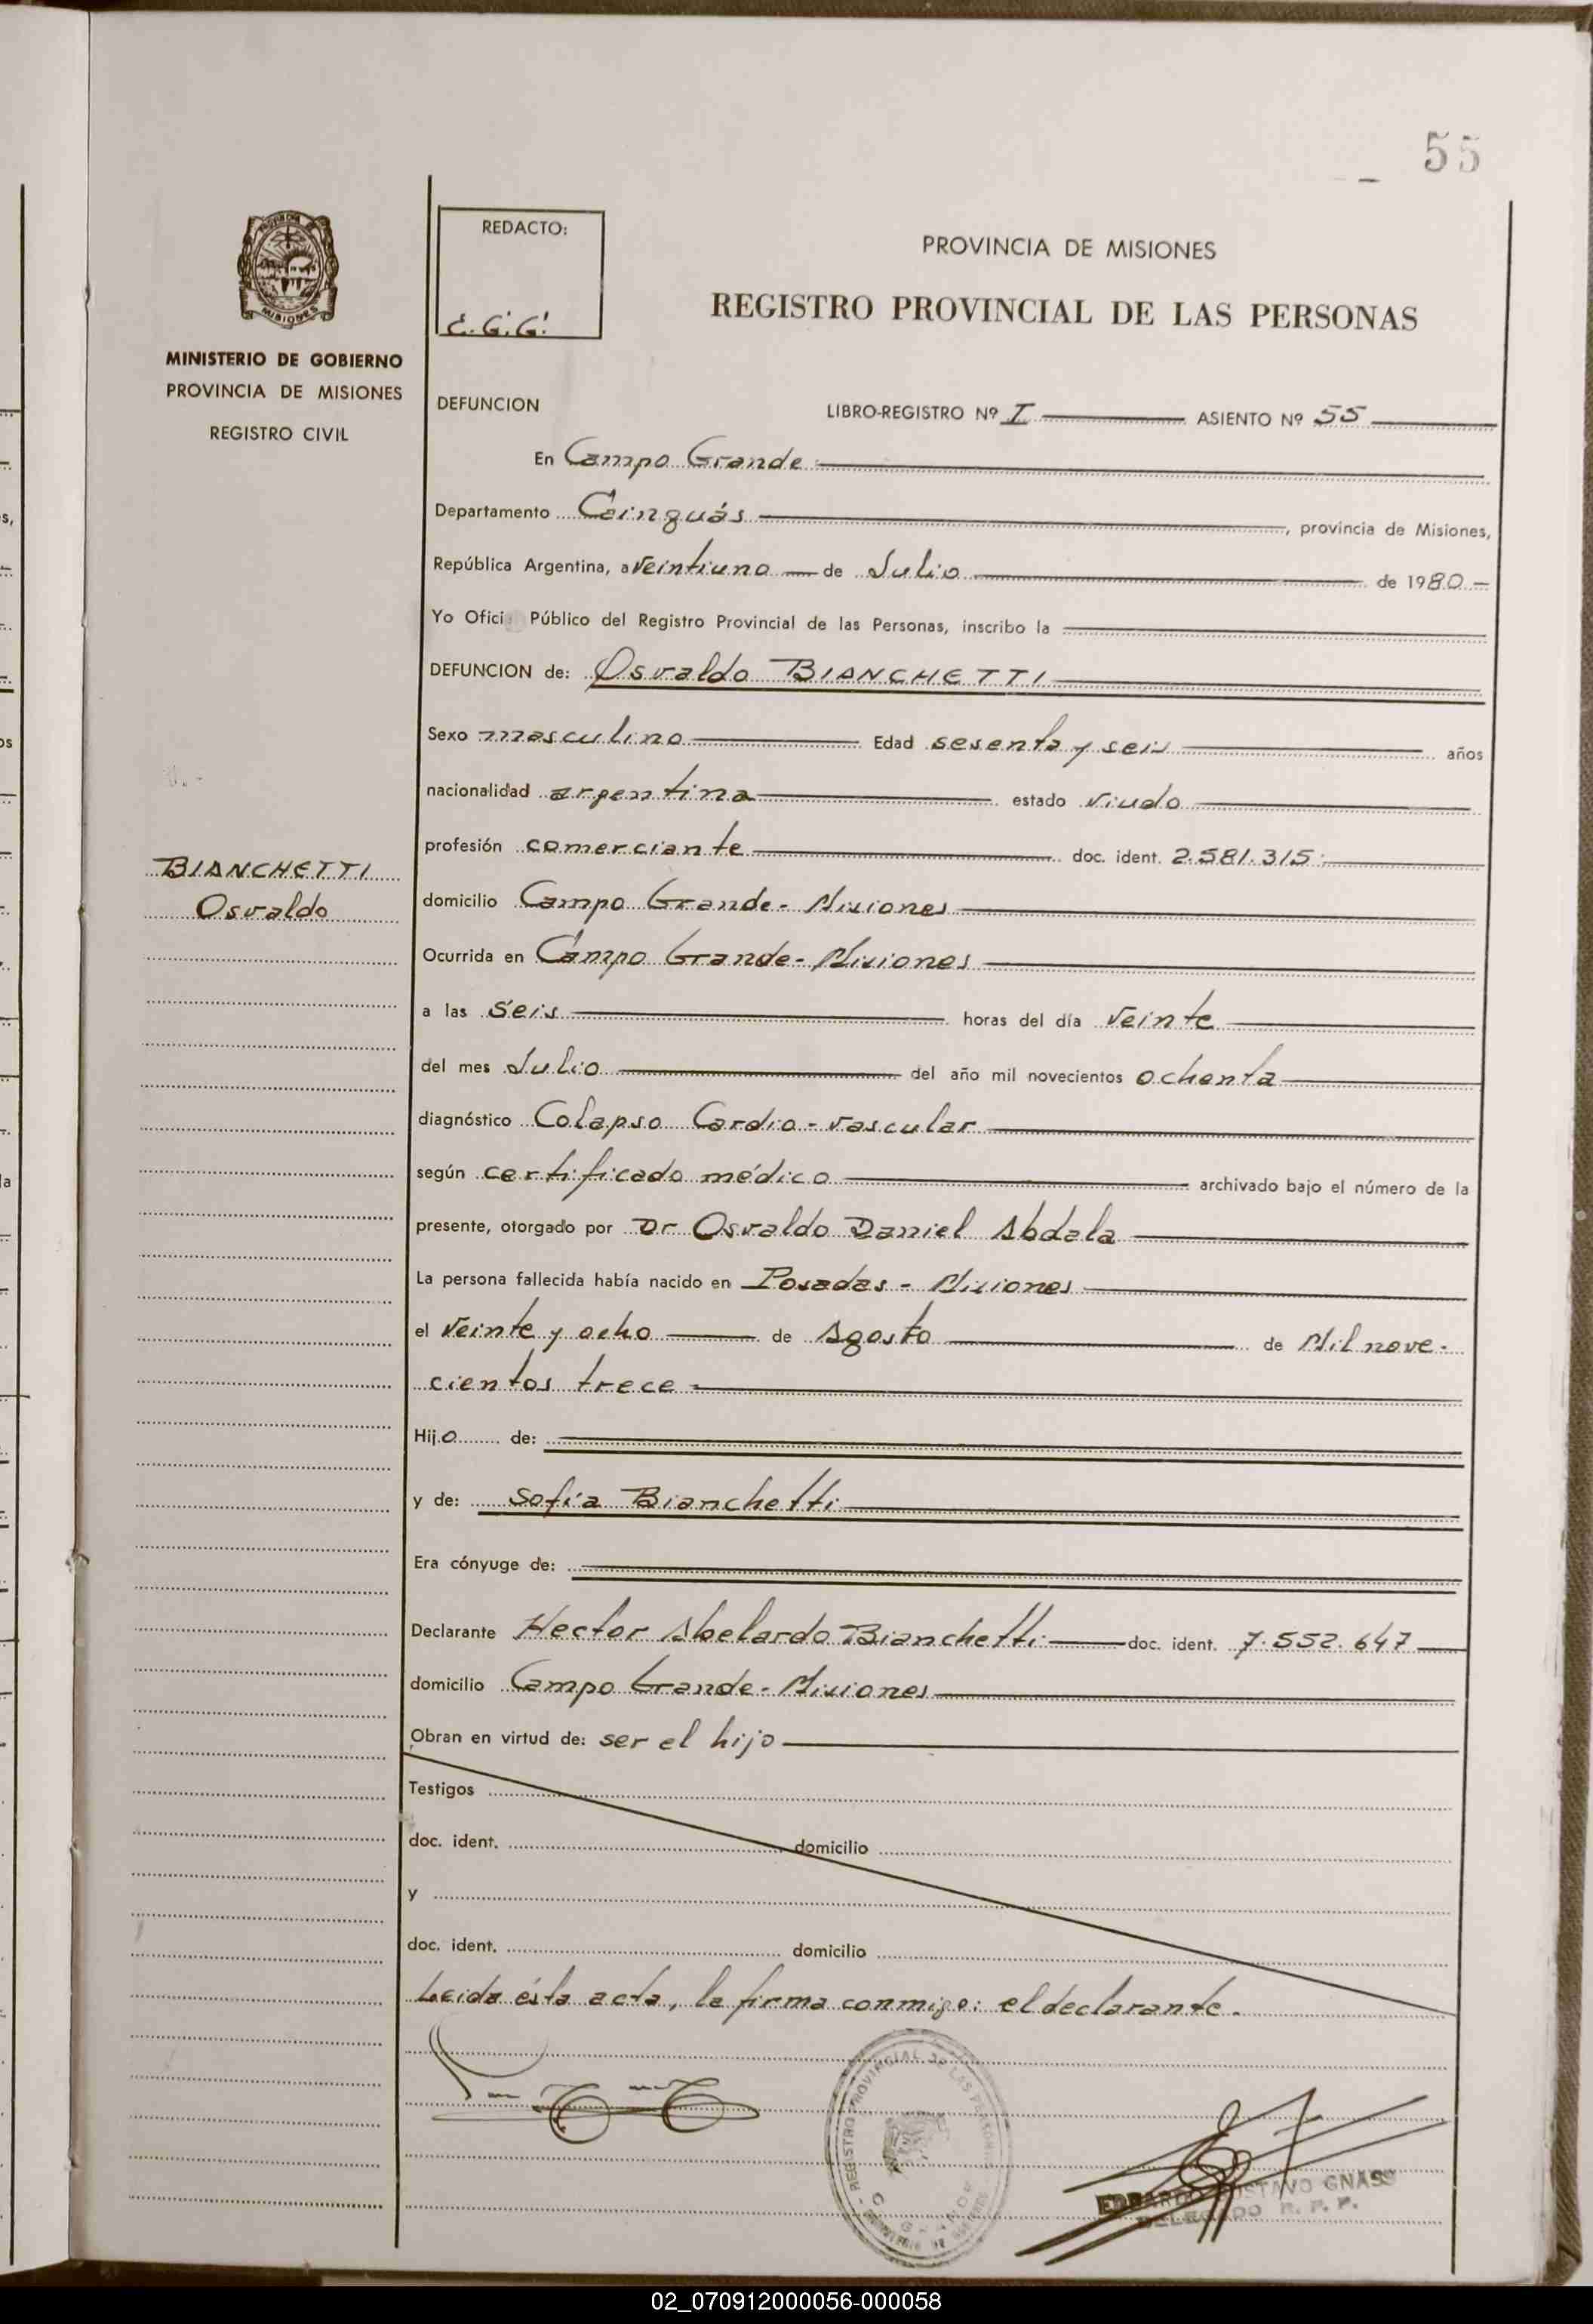 55
REDACTO:
E.G.G.
PROVINCIA DE MISIONES
REGISTRO PROVINCIAL DE LAS PERSONAS
MISIONES
MINISTERIO DE GOBIERNO
PROVINCIA DE MISIONES
REGISTRO CIVIL
DEFUNCION LIBRO-REGISTRO Nº I ASIENTO Nº 55
En Campo Grande
Departamento Cainguás, provincia de Misiones,
República Argentina, a veintiuno de Julio de 1980
Yo Ofici Público del Registro Provincial de las Personas, inscribo la
DEFUNCION de: Osvaldo BIANCHETTI
Sexo masculino Edad sesenta y seis años
nacionalidad argentina estado viudo
profesión comerciante doc. ident. 2.581.315
BIANCHETTI
Osvaldo
domicilio Campo Grande - Misiones
Ocurrida en Campo Grande - Misiones
a las seis horas del día veinte
del mes Julio del año mil novecientos ochenta
diagnóstico Colapso Cardio-vascular
según certificado médico archivado bajo el número de la
presente, otorgado por Dr Osvaldo Daniel Abdala
La persona fallecida había nacido en Posadas - Misiones
el veinte y ocho de Agosto de Mil nove-
cientos trece
Hijo de:
y de: Sofía Bianchetti
Era cónyuge de:
Declarante Hector Abelardo Bianchetti doc. ident. 7.552.647
domicilio Campo Grande - Misiones
Obran en virtud de: ser el hijo
Testigos
doc. ident. domicilio
y
doc. ident. domicilio
Leida ésta acta, la firma conmigo: el declarante.
REGISTRO PROVINCIAL DE LAS PERSONAS
EDUARDO GUSTAVO GNASS
DELEGADO R. P. P.
02_070912000056-000058